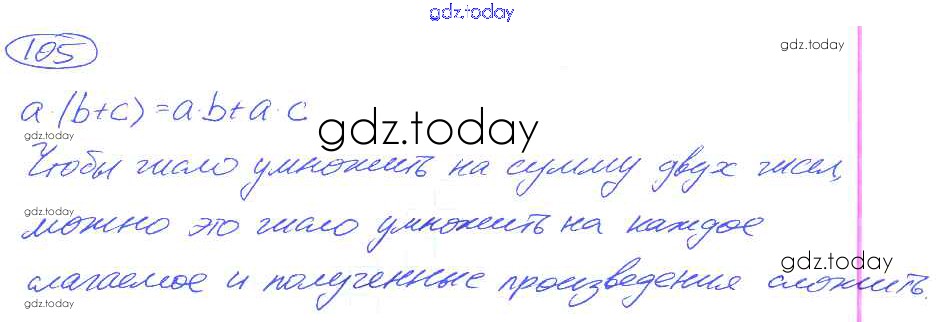 gdz.today
105
gdz.today
a·(b+c)=a·b+a·c
gdz.today
gdz.today
Чтобы число умножить на сумму двух чисел,
gdz.today
можно это число умножить на каждое
gdz.today
слагаемое и полученные произведения сложить.
gdz.today